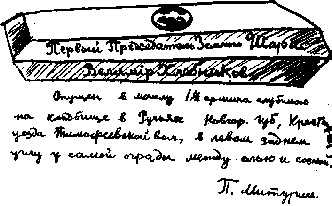 Первый Председатель Земного Шара
Велимір Хлебников
Опущен в могилу 1½ аршина глубиною
на кладбище в Ручьях Новгор. губ, Крест
уезда Тимофеевской вол, в левом заднем
углу у самой ограды между елью и сосной.
П. Митурич.